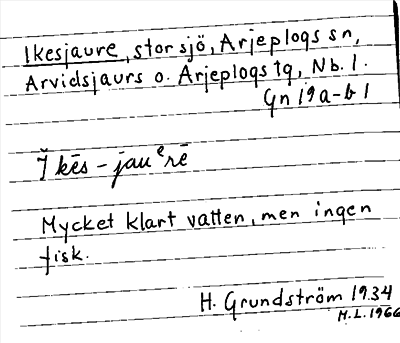 Ikesjaure, stor sjö, Arjeplogs sn,
Arvidsjaurs o. Arjeplogs tg, Nb. l.
Gn 19a-b 1
Ĭkēs-jauᵉrē
Mycket klart vatten, men ingen
fisk.
H. Grundström 1934
H.L. 1966